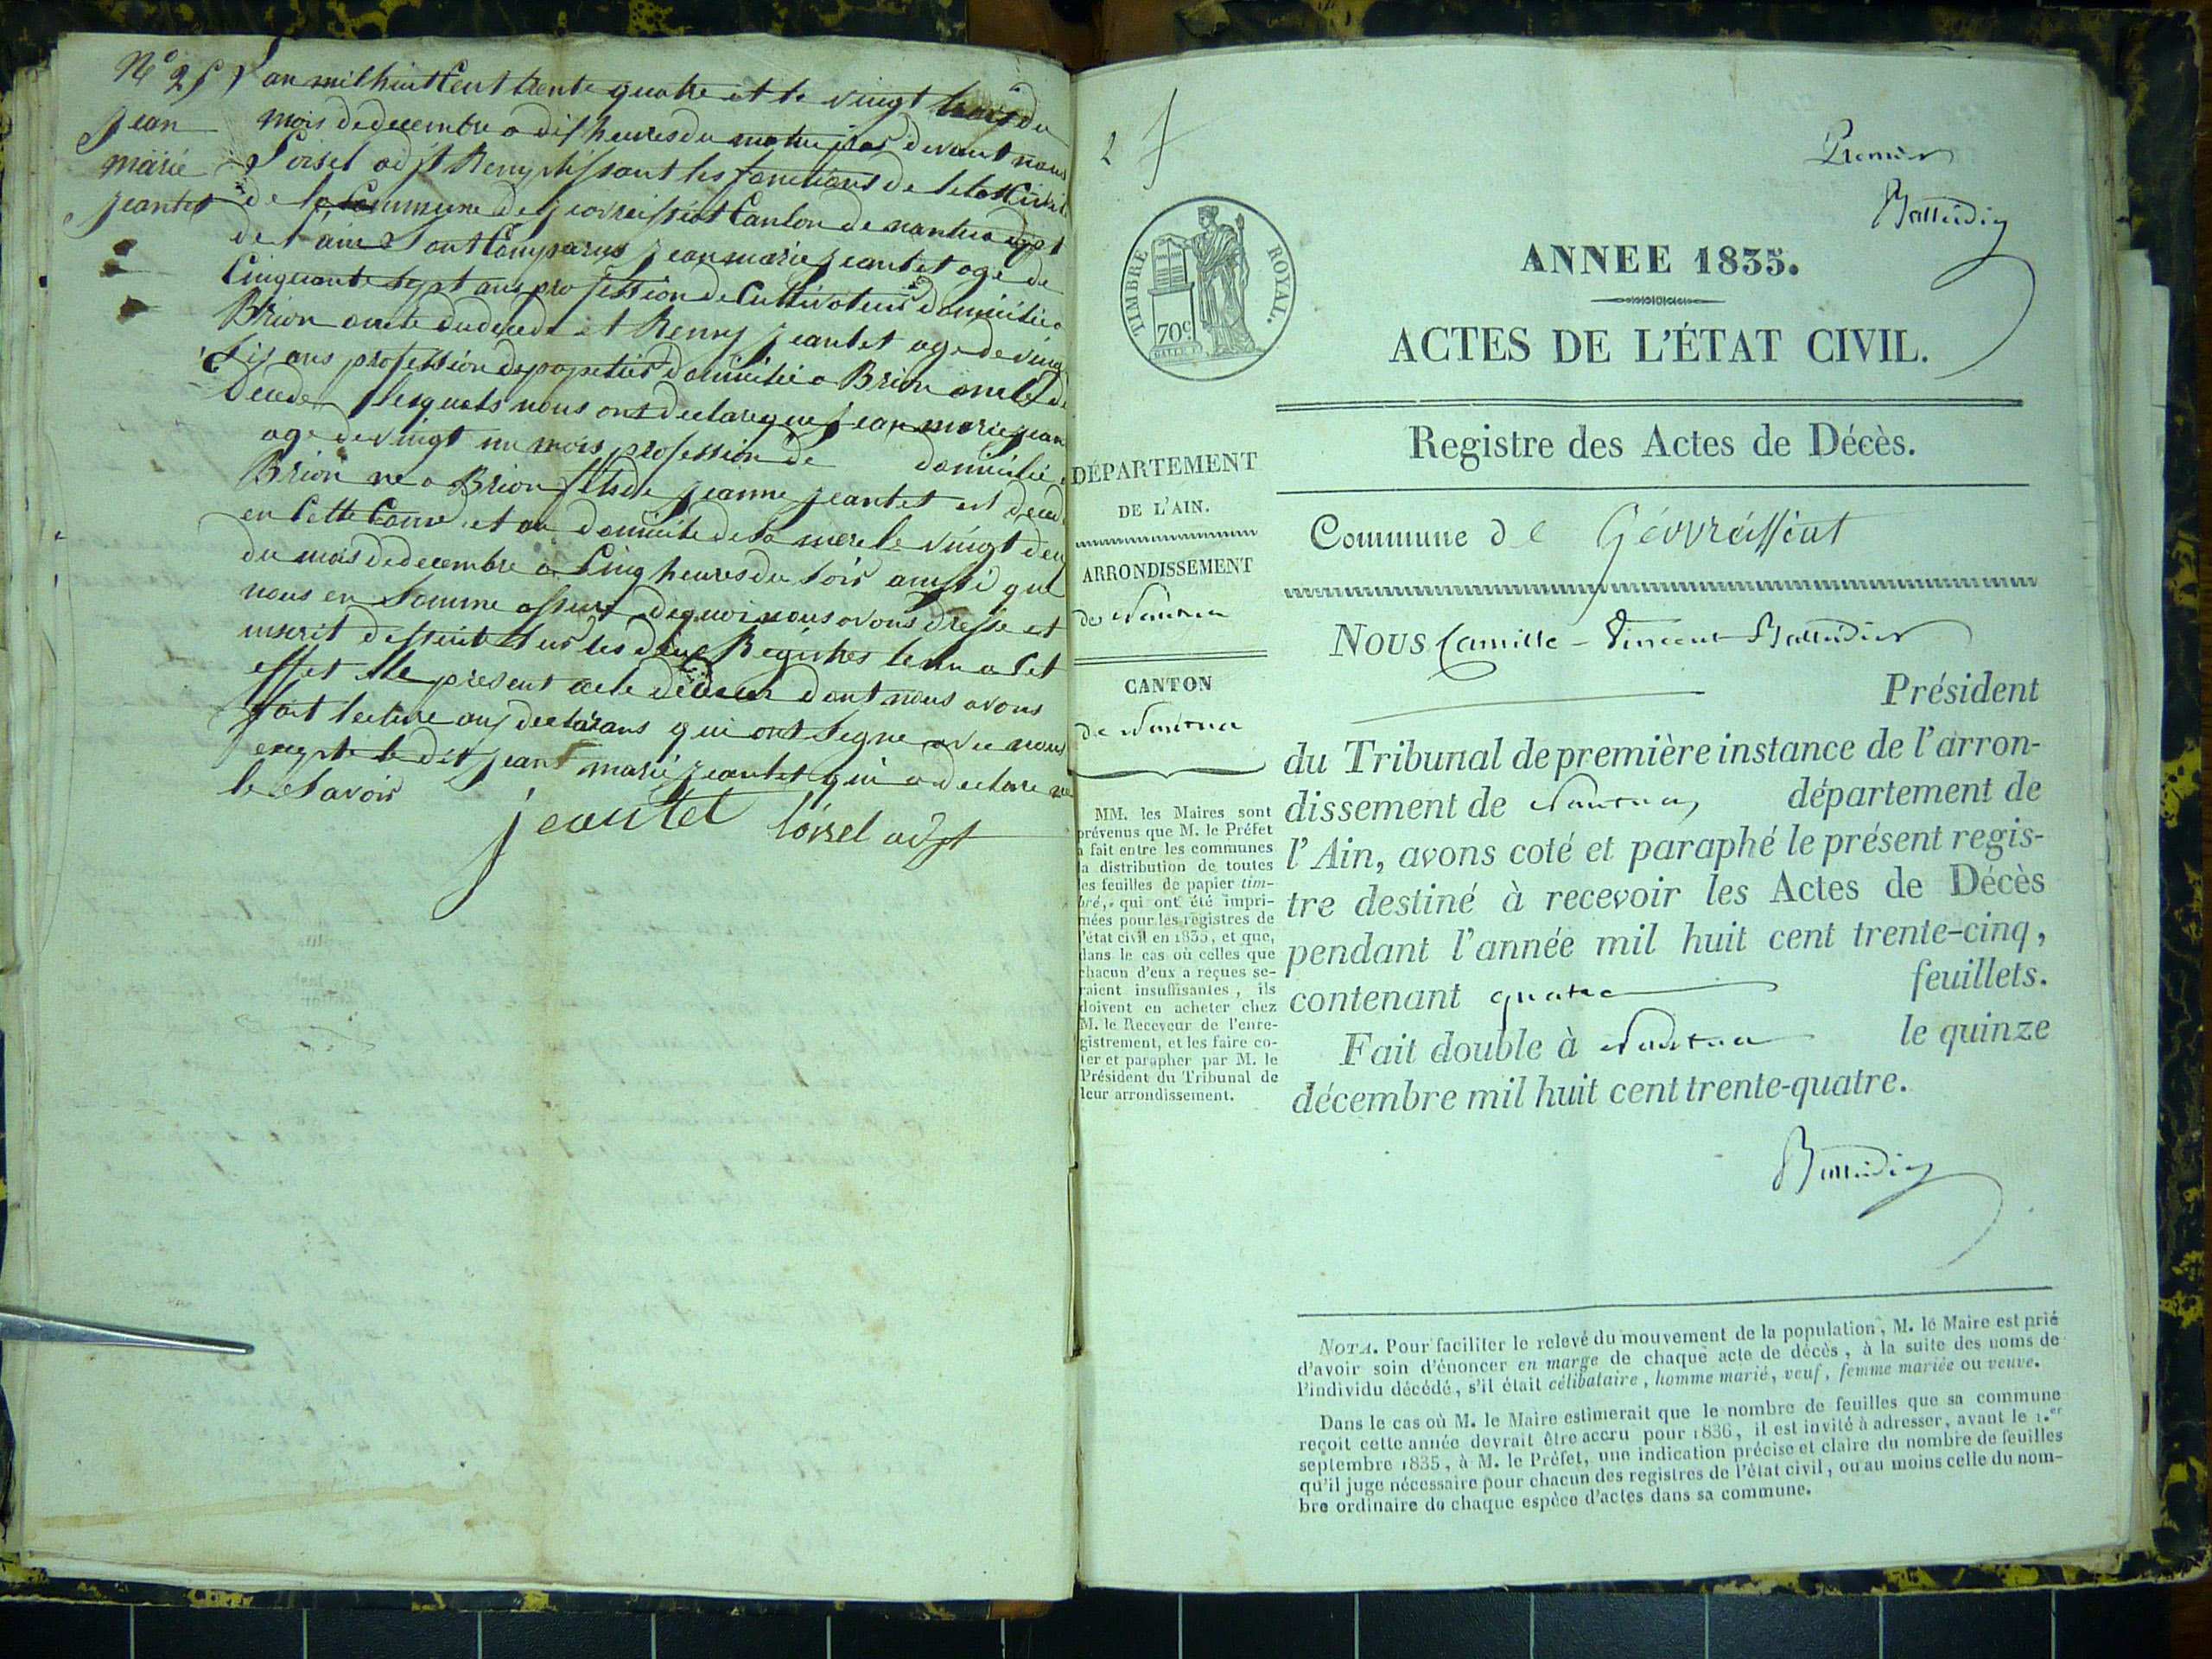 N° 25 L'an mil huit Cent trente quatre et le vingt trois du
Jean mois de decembre a dix heures du matin par devant nous
marie Loisel adjt Remplissant les fonctions de letat Civil
Jeantet de la Commune de geovreissiat Canton de nantua dept
de l'ain Sont Comparus jean marie jeantet age de
Cinquante sept ans profession de Cultivateur domicilié a
Brion oncle du decede et Remy jeantet age de ving
Six ans profession de propretier domicilié a Brion oncle d
decede lesquels nous ont declare que jean marie jean
age de vingt un mois profession de domicilié
Brion ne a Brion fils de jeanne jeantet est deced
en Cette Comne et au domicile de Sa mere le vingt deu
du mois de decembre a Cinq heures du Soir ainssi que
nous en Somme assuré dequoi nous avons dresse et
inscrit de Suite Sur les deux Registres tenu a Cet
effet le present acte de deces dont nous avons
fait lecture aux declarans qui ont Signe avec nous
excepte le dit jean marie jeantet qui a declare ne
le Savoir
jeantet loisel adjt
2
Premier
TIMBRE ROYAL.
70c
ANNEE 1835.
ACTES DE L'ÉTAT CIVIL.
Registre des Actes de Décès.
DÉPARTEMENT
DE L'AIN.
ARRONDISSEMENT
de Nantua
CANTON
de Nantua
MM. les Maires sont
prévenus que M. le Préfet
a fait entre les communes
la distribution de toutes
les feuilles de papier tim-
bré, qui ont été impri-
mées pour les registres de
l'état civil en 1835, et que,
dans le cas où celles que
chacun d'eux a reçues se-
raient insuffisantes, ils
doivent en acheter chez
M. le Receveur de l'enre-
gistrement, et les faire co-
ter et parapher par M. le
Président du Tribunal de
leur arrondissement.
Commune de Géovreissiat
NOUS Camille - Vincent
Président
du Tribunal de première instance de l'arron-
dissement de Nantua, département de
l'Ain, avons coté et paraphé le présent regis-
tre destiné à recevoir les Actes de Décès
pendant l'année mil huit cent trente-cinq,
contenant quatre feuillets.
Fait double à Nantua le quinze
décembre mil huit cent trente-quatre.
NOTA. Pour faciliter le relevé du mouvement de la population, M. le Maire est prié
d'avoir soin d'énoncer en marge de chaque acte de décès, à la suite des noms de
l'individu décédé, s'il était célibataire, homme marié, veuf, femme mariée ou veuve.
Dans le cas où M. le Maire estimerait que le nombre de feuilles que sa commune
reçoit cette année devrait être accru pour 1836, il est invité à adresser, avant le 1.er
septembre 1835, à M. le Préfet, une indication précise et claire du nombre de feuilles
qu'il juge nécessaire pour chacun des registres de l'état civil, ou au moins celle du nom-
bre ordinaire de chaque espèce d'actes dans sa commune.